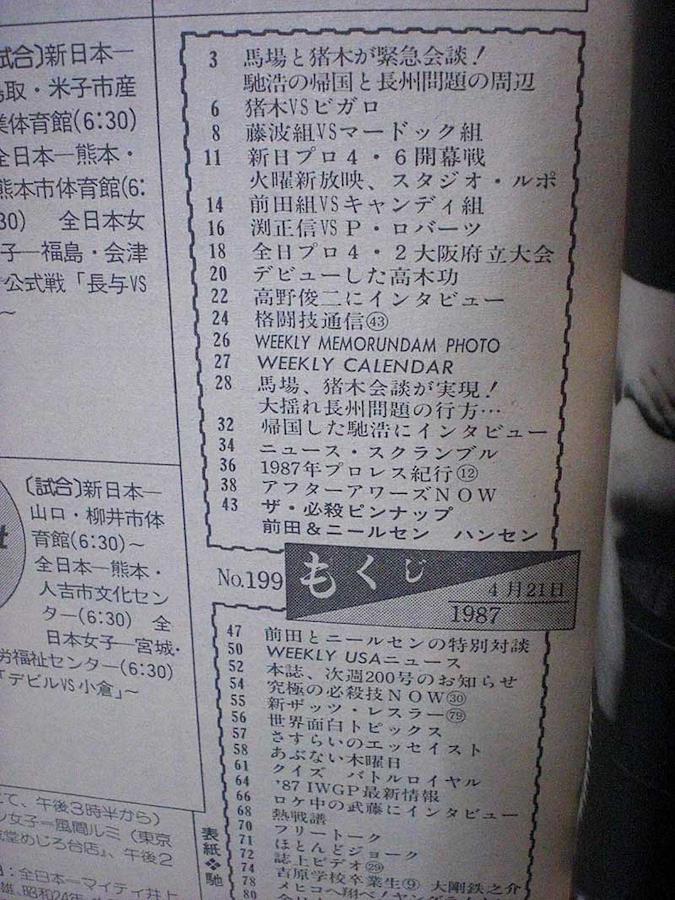 試合〕新日本―
取・米子市産
体育館(6:30)
全日本―熊本・
熊本市体育館(6:
30)　全日本女
子―福島・会津
公式戦「長与VS
～
〔試合〕新日本―
山口・柳井市体
育館(6:30)～
全日本―熊本・
人吉市文化セン
ター(6:30)　全
日本女子―宮城・
労福祉センター(6:30)
「デビルVS小倉」～
て、午後3時半から)
女子=風間ルミ(東京
堂めじろ台店」、午後2
:全日本=マイティ井上
雄、昭和24年
3 馬場と猪木が緊急会談!
馳浩の帰国と長州問題の周辺
6 猪木VSビガロ
8 藤波組VSマードック組
11 新日プロ4・6開幕戦
火曜新放映、スタジオ・ルポ
14 前田組VSキャンディ組
16 渕正信VSP・ロバーツ
18 全日プロ4・2大阪府立大会
20 デビューした高木功
22 高野俊二にインタビュー
24 格闘技通信㊸
26 WEEKLY MEMORUNDAM PHOTO
27 WEEKLY CALENDAR
28 馬場、猪木会談が実現!
大揺れ長州問題の行方…
32 帰国した馳浩にインタビュー
34 ニュース・スクランブル
36 1987年プロレス紀行⑫
38 アフターアワーズNOW
43 ザ・必殺ピンナップ
前田&ニールセン　ハンセン
No.199
もくじ
4月21日
1987
47 前田とニールセンの特別対談
50 WEEKLY USAニュース
52 本誌、次週200号のお知らせ
54 究極の必殺技NOW㉚
55 新ザッツ・レスラー㊆㊈
56 世界面白トピックス
57 さすらいのエッセイスト
58 あぶない木曜日
61 クイズ　バトルロイヤル
64 '87 IWGP最新情報
66 ロケ中の武藤にインタビュー
68 熱戦譜
70 フリートーク
71 ほとんどジョーク
72 誌上ビデオ㉙
74 吉原学校卒業生⑨ 大剛鉄之介
78 メヒコへ翔べ!ヤングライ
80
表紙❖馳